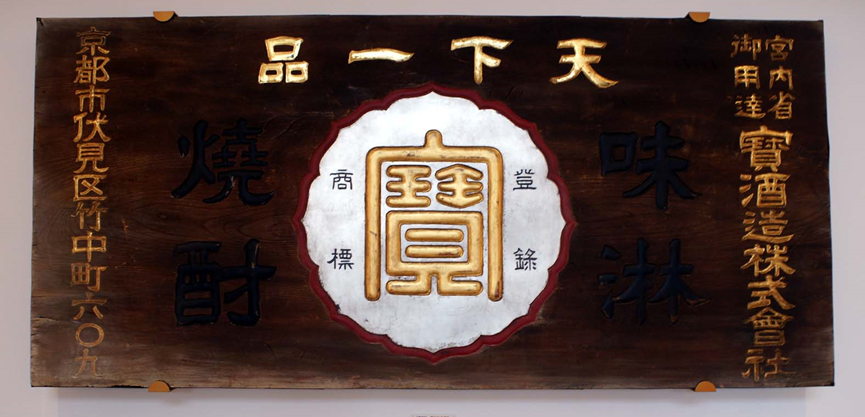 天下一品
宮内省
御用達
寳酒造株式會社
味淋
登錄
寳
商標
燒酎
京都市伏見区竹中町六〇九